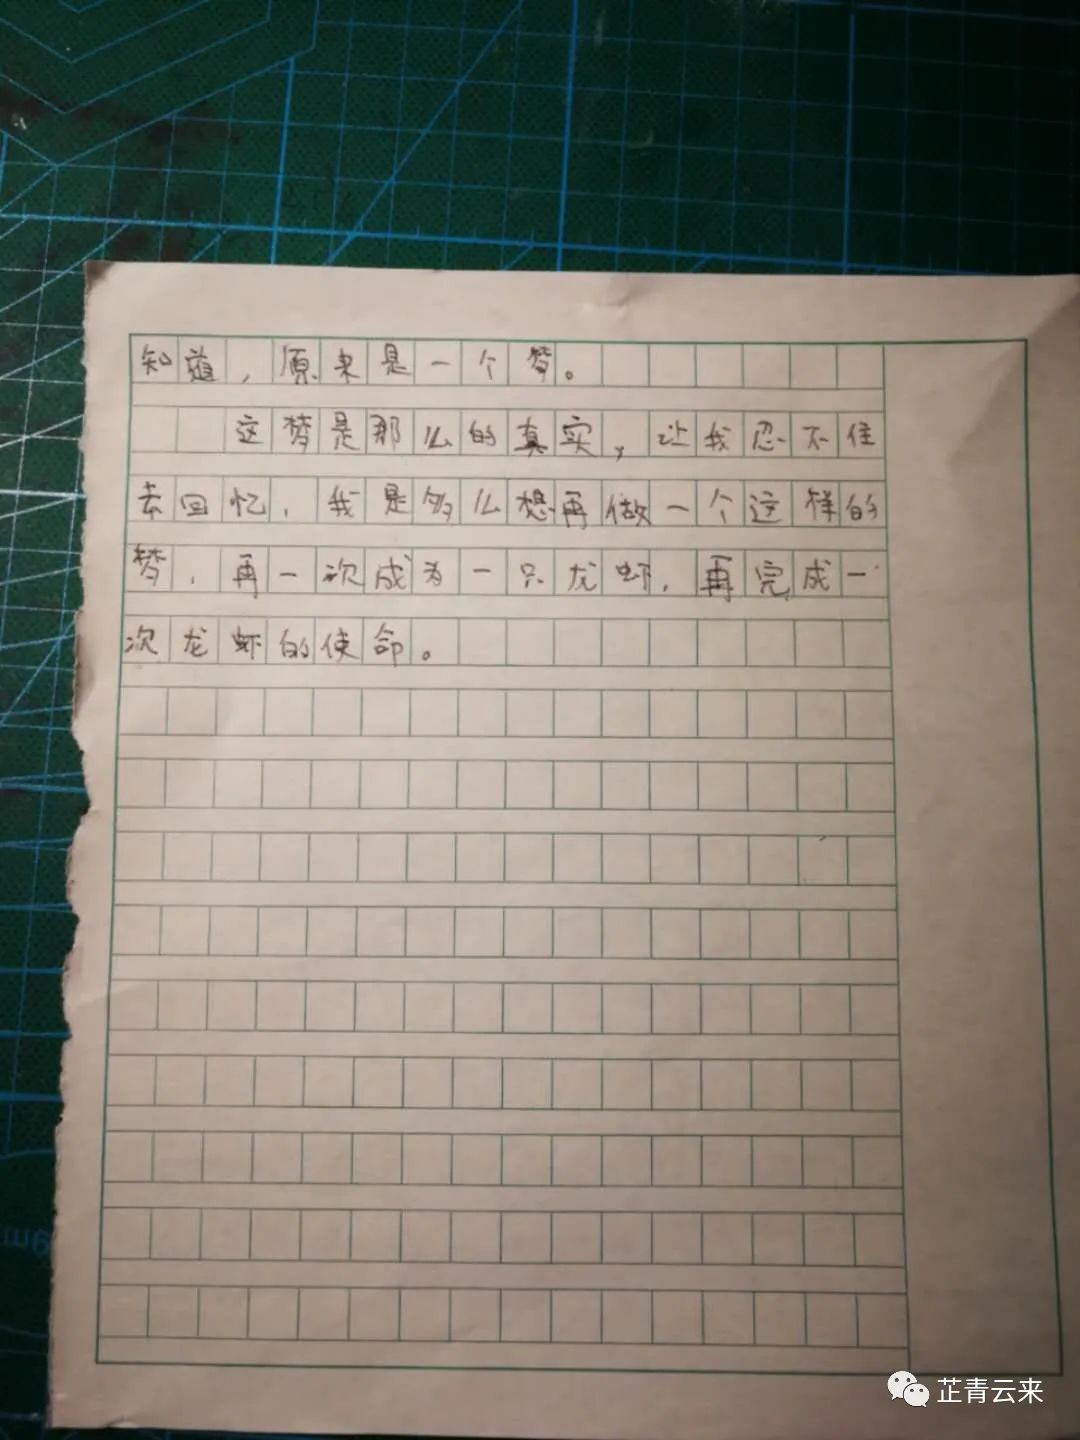 知道，原来是一个梦。
这梦是那么的真实，让我忍不住
去回忆，我是多么想再做一个这样的
梦，再一次成为一只龙虾，再完成一
次龙虾的使命。
芷青云来